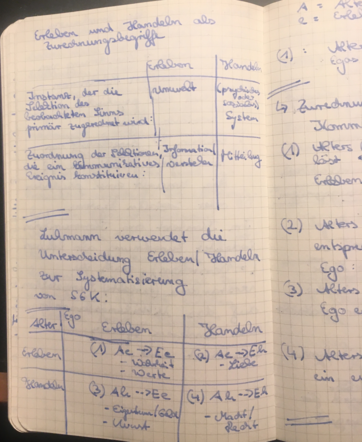 Erleben und Handeln als
Zurechnungsbegriffe
Erleben
Handeln
Instanz, der die
Selektion des
beobachteten Sinns
primär zugerechnet wird:
Umwelt
System
Zuordnung der Selektionen,
die ein kommunikatives
Ereignis konstituieren:
Information/
Verstehen
Mitteilung
Luhmann verwendet die
Unterscheidung Erleben/Handeln
zur Systematisierung
von SGK:
Alter
Ego
Erleben
Handeln
Erleben
(1) Ae → Ee
- Wahrheit
- Werte
(2) Ae → Eh
- Liebe
Handeln
(3) Ah → Ee
- Eigentum/Geld
- Kunst
(4) Ah → Eh
- Macht/
Recht
A = Alter
e = Erleb
(1) :
Alters
- Egos
↳ Zurechnu
Kommu
(1) Alters
löst
Erleben
(2) Alters
entspre
Ego :
(3) Alters
Ego e
(4) Alters
ein